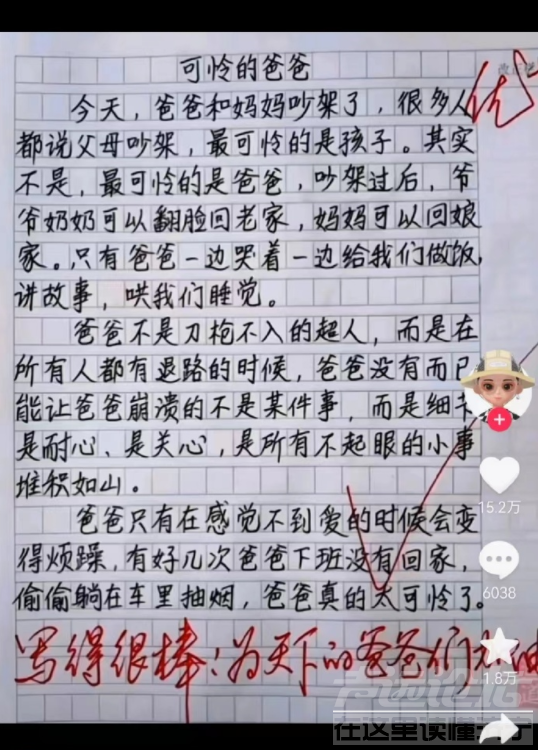 可怜的爸爸
优
今天，爸爸和妈妈吵架了，很多人
都说父母吵架，最可怜的是孩子。其实
不是，最可怜的是爸爸，吵架过后，爷
爷奶奶可以翻脸回老家，妈妈可以回娘
家。只有爸爸一边哭着一边给我们做饭，
讲故事，哄我们睡觉。
爸爸不是刀枪不入的超人，而是在
所有人都有退路的时候，爸爸没有而已
能让爸爸崩溃的不是某件事，而是细节
是耐心、是关心，是所有不起眼的小事
堆积如山。
爸爸只有在感觉不到爱的时候会变
得烦躁，有好几次爸爸下班没有回家，
偷偷躺在车里抽烟，爸爸真的太可怜了。
写得很棒！为天下的爸爸们加油
15.2万
6038
1.8万
在这里读懂